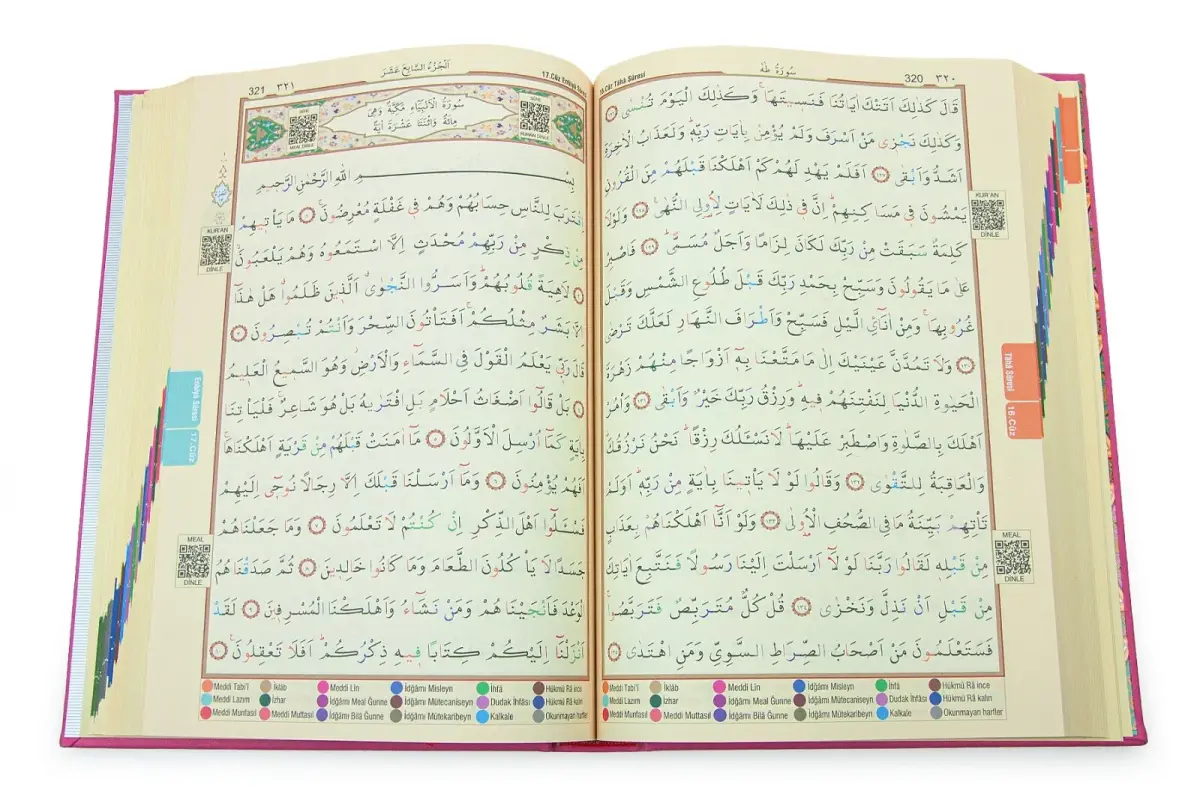 320 ٣٢٠
سُورَةُ طٰهٰ
16.Cüz Tâhâ Sûresi
قَالَ كَذٰلِكَ اَتَتْكَ اٰيَاتُنَا فَنَسٖيتَهَاۚ وَكَذٰلِكَ الْيَوْمَ تُنْسٰى ﴿١٢٦﴾
وَكَذٰلِكَ نَجْزٖى مَنْ اَسْرَفَ وَلَمْ يُؤْمِنْ بِاٰيَاتِ رَبِّهٖۜ وَلَعَذَابُ الْاٰخِرَةِ
اَشَدُّ وَاَبْقٰى ﴿١٢٧﴾ اَفَلَمْ يَهْدِ لَهُمْ كَمْ اَهْلَكْنَا قَبْلَهُمْ مِنَ الْقُرُونِ
يَمْشُونَ فٖى مَسَاكِنِهِمْۜ اِنَّ فٖى ذٰلِكَ لَاٰيَاتٍ لِاُولِى النُّهٰى ﴿١٢٨﴾ وَلَوْلَا
كَلِمَةٌ سَبَقَتْ مِنْ رَبِّكَ لَكَانَ لِزَامًا وَاَجَلٌ مُسَمًّىۜ ﴿١٢٩﴾ فَاصْبِرْ
عَلٰى مَا يَقُولُونَ وَسَبِّحْ بِحَمْدِ رَبِّكَ قَبْلَ طُلُوعِ الشَّمْسِ وَقَبْلَ
غُرُوبِهَاۚ وَمِنْ اٰنَآئِ الَّيْلِ فَسَبِّحْ وَاَطْرَافَ النَّهَارِ لَعَلَّكَ تَرْضٰى
﴿١٣٠﴾ وَلَا تَمُدَّنَّ عَيْنَيْكَ اِلٰى مَا مَتَّعْنَا بِهٖٓ اَزْوَاجًا مِنْهُمْ زَهْرَةَ
الْحَيٰوةِ الدُّنْيَا لِنَفْتِنَهُمْ فٖيهِۜ وَرِزْقُ رَبِّكَ خَيْرٌ وَاَبْقٰى ﴿١٣١﴾ وَأْمُرْ
اَهْلَكَ بِالصَّلٰوةِ وَاصْطَبِرْ عَلَيْهَاۜ لَا نَسْـَٔلُكَ رِزْقًاۜ نَحْنُ نَرْزُقُكَۜ
وَالْعَاقِبَةُ لِلتَّقْوٰى ﴿١٣٢﴾ وَقَالُوا لَوْلَا يَأْتٖينَا بِاٰيَةٍ مِنْ رَبِّهٖۜ اَوَلَمْ
تَأْتِهِمْ بَيِّنَةُ مَا فِى الصُّحُفِ الْاُولٰى ﴿١٣٣﴾ وَلَوْ اَنَّآ اَهْلَكْنَاهُمْ بِعَذَابٍ
مِنْ قَبْلِهٖ لَقَالُوا رَبَّنَا لَوْلَآ اَرْسَلْتَ اِلَيْنَا رَسُولًا فَنَتَّبِعَ اٰيَاتِكَ
مِنْ قَبْلِ اَنْ نَذِلَّ وَنَخْزٰى ﴿١٣٤﴾ قُلْ كُلٌّ مُتَرَبِّصٌ فَتَرَبَّصُواۚ
فَسَتَعْلَمُونَ مَنْ اَصْحَابُ الصِّرَاطِ السَّوِىِّ وَمَنِ اهْتَدٰى ﴿١٣٥﴾
KUR'AN
DİNLE
MEAL
DİNLE
Tâhâ Sûresi
16.Cüz
Meddi Tabi'î İklâb Meddi Lîn İdğâmı Misleyn İhfâ Hükmü Râ ince
Meddi Lazım İzhar İdğâmı Meal Ğunne İdğâmı Mütecaniseyn Dudak İhfâsı Hükmü Râ kalın
Meddi Munfasıl Meddi Muttasıl İdğâmı Bilâ Ğunne İdğâmı Mütekaribeyn Kalkale Okunmayan harfler
321 ٣٢١
اَلْجُزْءُ السَّابِعَ عَشَرَ
17.Cüz Enbiyâ Sûresi
سُورَةُ الْاَنْبِيَٓاءِ مَكِّيَّةٌ وَهِىَ
مِائَةٌ وَاثْنَتَا عَشْرَةَ اٰيَةً
MEAL DİNLE
KUR'AN DİNLE
بِسْمِ اللّٰهِ الرَّحْمٰنِ الرَّحٖيمِ
اِقْتَرَبَ لِلنَّاسِ حِسَابُهُمْ وَهُمْ فٖى غَفْلَةٍ مُعْرِضُونَۚ ﴿١﴾ مَا يَأْتٖيهِمْ
مِنْ ذِكْرٍ مِنْ رَبِّهِمْ مُحْدَثٍ اِلَّا اسْتَمَعُوهُ وَهُمْ يَلْعَبُونَۙ
﴿٢﴾ لَاهِيَةً قُلُوبُهُمْۜ وَاَسَرُّوا النَّجْوَىۗ اَلَّذٖينَ ظَلَمُواۗ هَلْ هٰذَٓا
اِلَّا بَشَرٌ مِثْلُكُمْۚ اَفَتَأْتُونَ السِّحْرَ وَاَنْتُمْ تُبْصِرُونَ ﴿٣﴾
قَالَ رَبّٖى يَعْلَمُ الْقَوْلَ فِى السَّمَٓاءِ وَالْاَرْضِۘ وَهُوَ السَّمٖيعُ الْعَلٖيمُ
﴿٤﴾ بَلْ قَالُٓوا اَضْغَاثُ اَحْلَامٍ بَلِ افْتَرٰيهُ بَلْ هُوَ شَاعِرٌۚ فَلْيَأْتِنَا
بِاٰيَةٍ كَمَٓا اُرْسِلَ الْاَوَّلُونَ ﴿٥﴾ مَٓا اٰمَنَتْ قَبْلَهُمْ مِنْ قَرْيَةٍ اَهْلَكْنَاهَاۚ
اَفَهُمْ يُؤْمِنُونَ ﴿٦﴾ وَمَٓا اَرْسَلْنَا قَبْلَكَ اِلَّا رِجَالًا نُوحٖٓى اِلَيْهِمْ
فَسْـَٔلُٓوا اَهْلَ الذِّكْرِ اِنْ كُنْتُمْ لَا تَعْلَمُونَ ﴿٧﴾ وَمَا جَعَلْنَاهُمْ
جَسَدًا لَا يَأْكُلُونَ الطَّعَامَ وَمَا كَانُوا خَالِدٖينَ ﴿٨﴾ ثُمَّ صَدَقْنَاهُمُ
الْوَعْدَ فَاَنْجَيْنَاهُمْ وَمَنْ نَشَٓاءُ وَاَهْلَكْنَا الْمُسْرِفٖينَ ﴿٩﴾ لَقَدْ
اَنْزَلْنَٓا اِلَيْكُمْ كِتَابًا فٖيهِ ذِكْرُكُمْۜ اَفَلَا تَعْقِلُونَ۟ ﴿١٠﴾
KUR'AN
DİNLE
MEAL
DİNLE
Enbiyâ Sûresi
17.Cüz
Meddi Tabi'î İklâb Meddi Lîn İdğâmı Misleyn İhfâ Hükmü Râ ince
Meddi Lazım İzhar İdğâmı Meal Ğunne İdğâmı Mütecaniseyn Dudak İhfâsı Hükmü Râ kalın
Meddi Munfasıl Meddi Muttasıl İdğâmı Bilâ Ğunne İdğâmı Mütekaribeyn Kalkale Okunmayan harfler